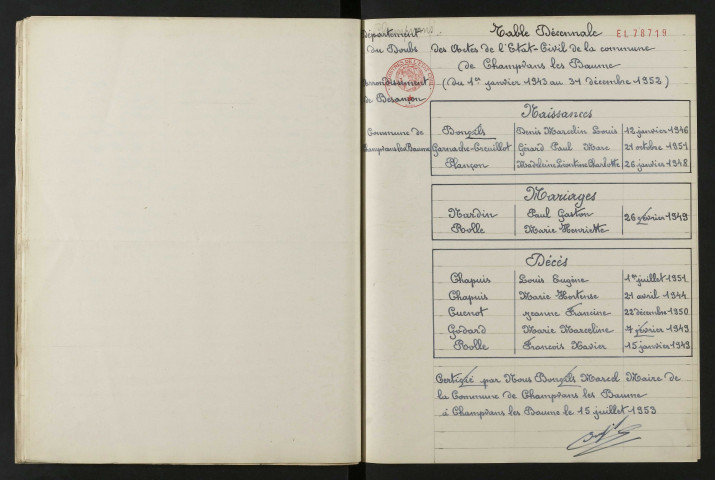 Département
du Doubs
Arrondissement
de Besançon
Commune de
Champvans les Baume
Table Décennale EL 78719
des Actes de l'Etat-Civil de la commune
de Champvans les Baume
(du 1er janvier 1943 au 31 décembre 1952)
Naissances
Bongals Denis Marcelin Louis 12 janvier 1946
Garnache-Creuillot Gérard Paul Marc 21 octobre 1951
Plançon Madeleine Léontine Charlotte 26 janvier 1948
Mariages
Nardin Paul Gaston 26 février 1949
Rolle Marie Henriette
Décès
Chapuis Louis Eugène 1er juillet 1951
Chapuis Marie Hortense 21 avril 1944
Cuenot Jeanne Francine 22 décembre 1950
Godard Marie Marceline 7 février 1949
Rolle Francois Xavier 15 janvier 1949
Certifié par Nous Marcel Maire de
la Commune de Champvans les Baume
à Champvans les Baume le 15 juillet 1953